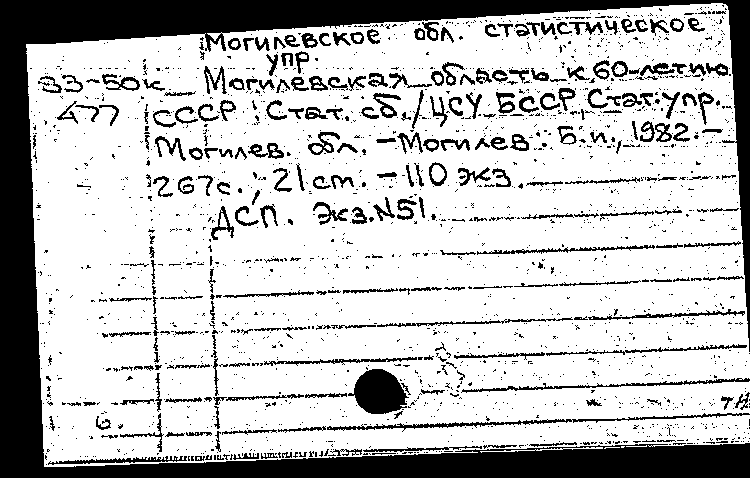 Могилевское обл. статистическое
упр.
83-50к Могилевская область к 60-летию
477 СССР : Стат. сб. / ЦСУ БССР, Стат. упр.
Могилев. обл. - Могилев : Б.и., 1982. -
267с. ; 21 см. - 110 экз.
ДСП. Экз. N51.
б.